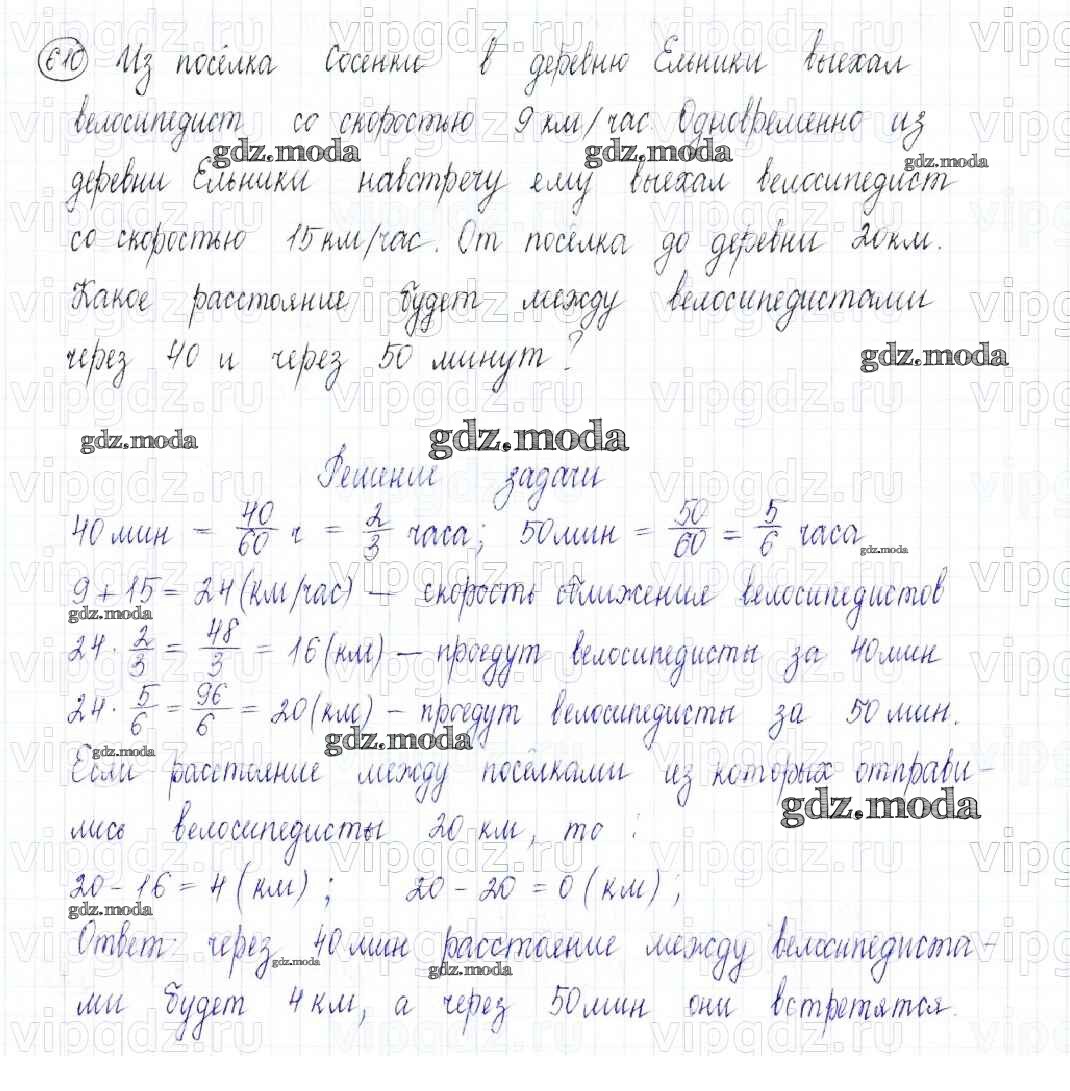 610 Из посёлка Сосенки в деревню Ельники выехал
велосипедист со скоростью 9 км/час. Одновременно из
gdz.moda gdz.moda gdz.moda
деревни Ельники навстречу ему выехал велосипедист
со скоростью 15 км/час. От посёлка до деревни 20 км.
Какое расстояние будет между велосипедистами
через 40 и через 50 минут?
gdz.moda
gdz.moda gdz.moda
Решение задачи
40 мин = 40/60 ч = 2/3 часа; 50 мин = 50/60 = 5/6 часа
gdz.moda
9 + 15 = 24 (км/час) — скорость сближения велосипедистов
gdz.moda
24 · 2/3 = 48/3 = 16 (км) — проедут велосипедисты за 40 мин
24 · 5/6 = 96/6 = 20 (км) — проедут велосипедисты за 50 мин.
gdz.moda gdz.moda
Если расстояние между посёлками из которых отправи-
gdz.moda
лись велосипедисты 20 км, то :
20 - 16 = 4 (км) ; 20 - 20 = 0 (км) ;
gdz.moda
Ответ: через 40 мин расстоение между велосипедиста-
gdz.moda gdz.moda
ми будет 4 км, а через 50 мин они встретятся.
vipgdz.ru